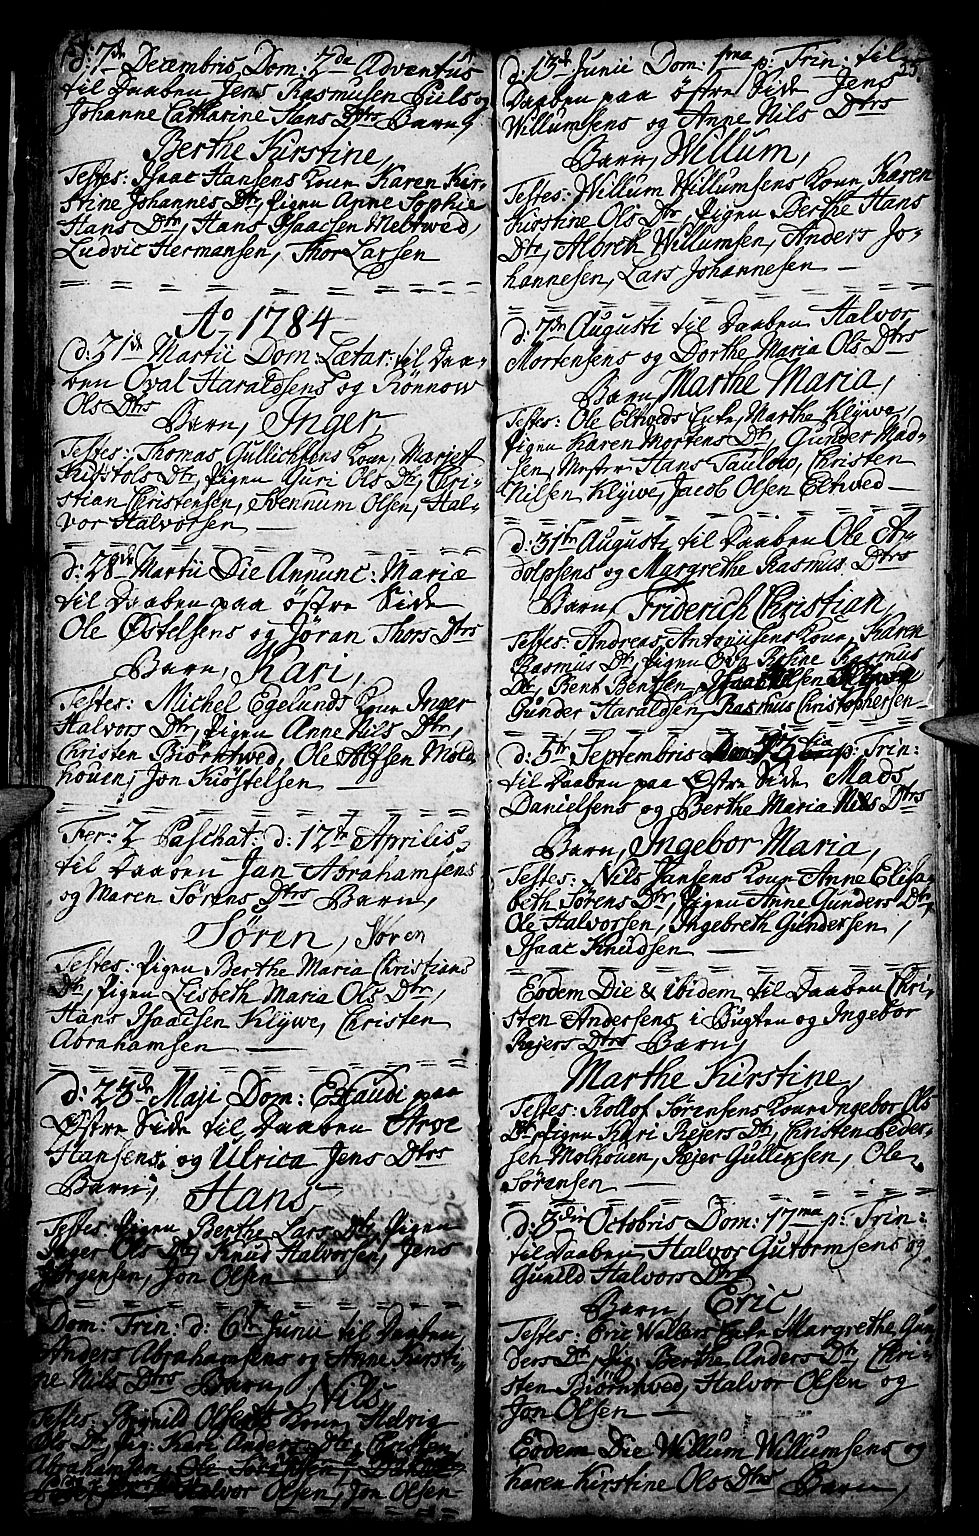 d: 7de Decembris Dom: 2da Adventus
til Daaben Jens Rasmusen Huls og
Johanne Catharine Hans Dtrs Barn,
Berthe Kirstine,
Testes: Isaac Hansens Kone Karen Kir-
stine Johannes Dtr, Pigen Anne Sophie
Hans Dtr, Hans Isaacsen Meltwed,
Ludvic Hermansen, Thor Larsen
Ao 1784
d: 31de Martii Dom: Lætar: til Daa-
ben Oval Haraldsens og Rönnow
Ols Dtrs
Barn, Inger,
Testes: Thomas Gullichsens Kone, Marjet
Kystols Dtr, Pigen Guri Ols Dtr, Chri-
stian Christensen, Svennum Olsen, Hal-
vor Halvorsen
d: 28de Martii Die Annunc: Mariæ
til Daaben paa östre Side
Ole Østelsens og Jöran Thors Dtrs
Barn, Kari,
Testes: Michel Egelunds Kone Inger
Halvors Dtr, Pigen Anne Nils Dtr,
Christen Biörntwed, Ole Alfsen Mole
houen, Jon Kiöstelsen
Fer: 2 Paschat: d: 12te Aprilis,
til Daaben Jan Abrahamsens
og Maren Sörens Dtrs Barn,
Sören, Sören
Testes: Pigen Berthe Maria Christians
Dtr, Pigen Lisbeth Maria Ols Dtr,
Hans Isaacsen Klÿwe, Christen
Abrahamsen
d: 23de Maji Dom: Exaudi paa
Østre Side til Daaben Aroe
Hansens og Ulrica Jens Dtrs
Barn, Hans
Testes: Pigen Berthe Lars Dtr, Pigen
Inger Ols Dtr, Knud Halvorsen, Jens
Jörgensen, Jon Olsen
Dom: Trin: d: 6te Junii til Daaben
Anders Abrahamsens og Anne Kirsti-
ne Nils Dtrs Barn, Nils
Testes: Brynild Olsens Kone Helvig
Ols Dtr, Pig: Kari Anders Dtr, Christen
Abrahamsen, Ole Sörensen,
Halvor Olsen, Jon Olsen
25
d: 13de Junii Dom: 1ma p: Trin: til
Daaben paa östre Side Jens
Willumsens og Anne Nils Dtrs
Barn, Willum,
Testes: Willum Willumsens Kone, Karen
Kirstine Ols Dtr, Pigen Berthe Hans
Dtr, Morth Willumsen, Anders Jo-
hannesen, Lars Johannesen
d: 7de Augusti til Daaben Halvor
Mortensens og Dorthe Maria Ols Dtrs
Barn, Marthe Maria,
Testes: Ole Eltveds Enke, Marthe Klÿwe,
Pigen Karen Mortens Dtr, Gunder Mad-
sen, Mester Hans Taulow, Christen
Nilsen Klÿwe, Jacob Olsen Eltwed
d: 31te Augusti til Daaben Ole A-
dolphsens og Margrethe Rasmus Dtrs
Barn, Friderich Christian,
Testes: Andreas Antonisens Kone, Karen
Rasmus Dtr, Pigen Eva Rosine Rasmus
Dtr, Bent Bentsen,
Gunder Haraldsen, Rasmus Christophersen
d: 5te Septembris p: Trin:
til Daaben paa Østre Side Mads
Danielsens og Berthe Maria Nils Dtrs
Barn, Ingebor Maria,
Testes: Nils Jansens Kone Anne Elisa-
beth Sörens Dtr, Pigen Anne Gunders Dtr,
Ole Halvorsen, Ingebreth Gundersen,
Isaac Knudsen
Eodem Die & ibidem til Daaben Chri-
sten Andersens i Bugten og Ingebor
Rejers Dtrs Barn,
Marthe Kirstine,
Testes: Rollof Sörensens Kone Ingebor Ols
Dtr, Pigen Kari Rejers Dtr, Christen Peder-
sen Molhouen, Rejer Gullicksen, Ole
Sörensen
d: 3die Octobris Dom: 17ma p: Trin:
til Daaben Halvor Gutormsens og
Gunild Halvors Dtrs
Barn, Eric,
Testes: Eric Wallers Enke Margrethe Gun-
ders Dtr, Pig: Berthe Anders Dtr, Chri-
sten Biörntwed, Halvor Olsen og
Jon Olsen
Eodem Die Willum Willumsens og
Karen Kirstine Ols Dtrs Barn,